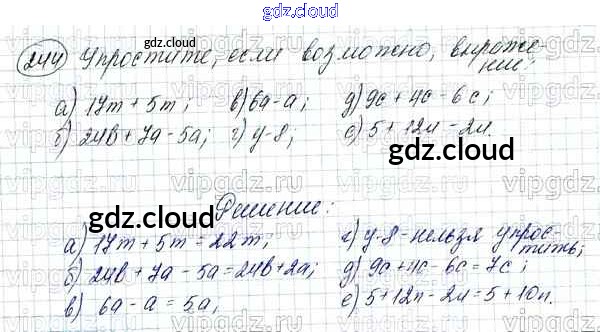 gdz.cloud
244 Упростите, если возможно, выраже-
gdz.cloud
ние:
а) 17m + 5m; в) 6a - a; д) 9c + 4c - 6c;
б) 24b + 7a - 5a; г) y - 8; е) 5 + 12n - 2n.
gdz.cloud
gdz.cloud Решение:
а) 17m + 5m = 22m; г) y - 8 - нельзя упрос-
тить;
б) 24b + 7a - 5a = 24b + 2a; д) 9c + 4c - 6c = 7c;
в) 6a - a = 5a; е) 5 + 12n - 2n = 5 + 10n.
gdz.cloud
gdz.cloud
vipgdz.com